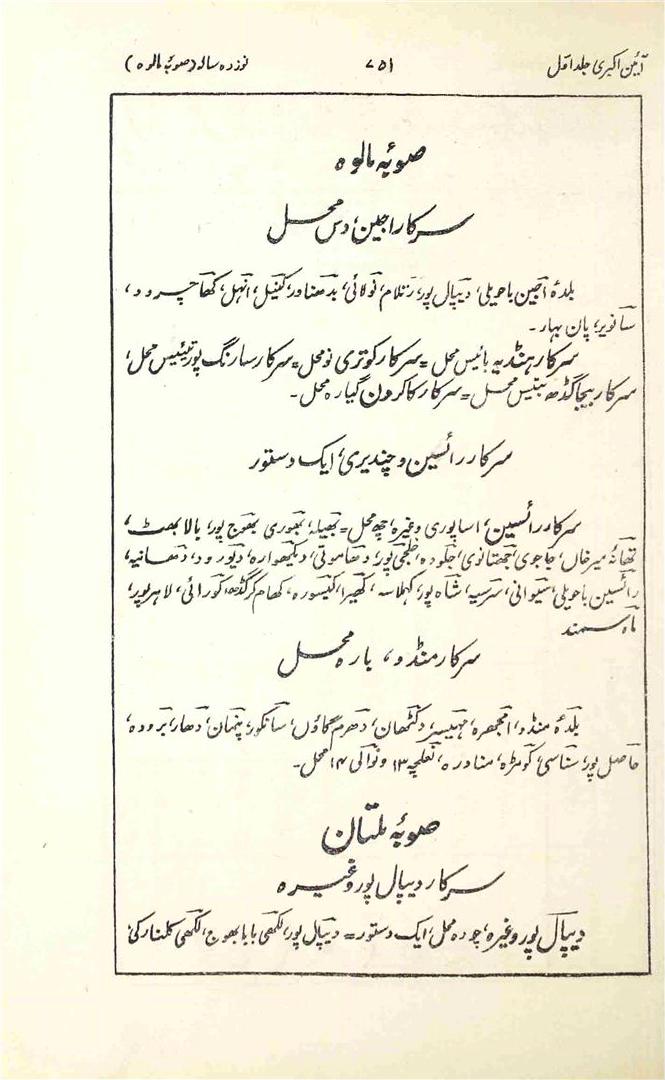 آئین اکبری جلد اول
۷۵۱
نوزدہ سالہ (صوبۂ مالوہ)
صوبۂ مالوہ
سرکار اجین، دس محل
بلدۂ اجین باحویلی، دیپال پور، رتلام، نولائی، بدھناور، کنیل، انہل، کھاچرود،
سانویر، پان بہار۔
سرکار ہنڈیہ بائیس محل = سرکار کوتری نو محل = سرکار سارنگ پور تیئیس محل،
سرکار بیجاگڈھ بتیس محل = سرکار کاکرون گیارہ محل۔
سرکار رائسین و چندیری، ایک دستور
سرکار رائسین، اساپوری وغیرہ، چھ محل = بھیلہ، بھوری بھوج پور، بالا بھٹ،
تھانۂ میر خاں، جاجوی، جھتانوی، جلودہ، خلجی پور، دھامونی، دیکھوارہ، دیورود، دھانیہ،
رائسین باحویلی، سیوانی، سرسیہ، شاہ پور، کہلاسہ، کھیرا، کیسورہ، کھام گرگڈھ، کورائی، لاہرپور،
ماہ سمند
سرکار منڈو، بارہ محل
بلدۂ منڈو، امجھرہ، مہیسر، دکٹھان، دھرم گاؤں، سانکور، پنمان، دھار، برودہ،
حاصل پور، سناسی، کومڑہ، مناورہ، نعلچہ ۱۳ و نوالی ۱۴ محل۔
صوبۂ ملتان
سرکار دیپال پور وغیرہ
دیپال پور وغیرہ، چودہ محل، ایک دستور = دیپال پور، لکھی بابا بھوج، لکھی کلنارکی